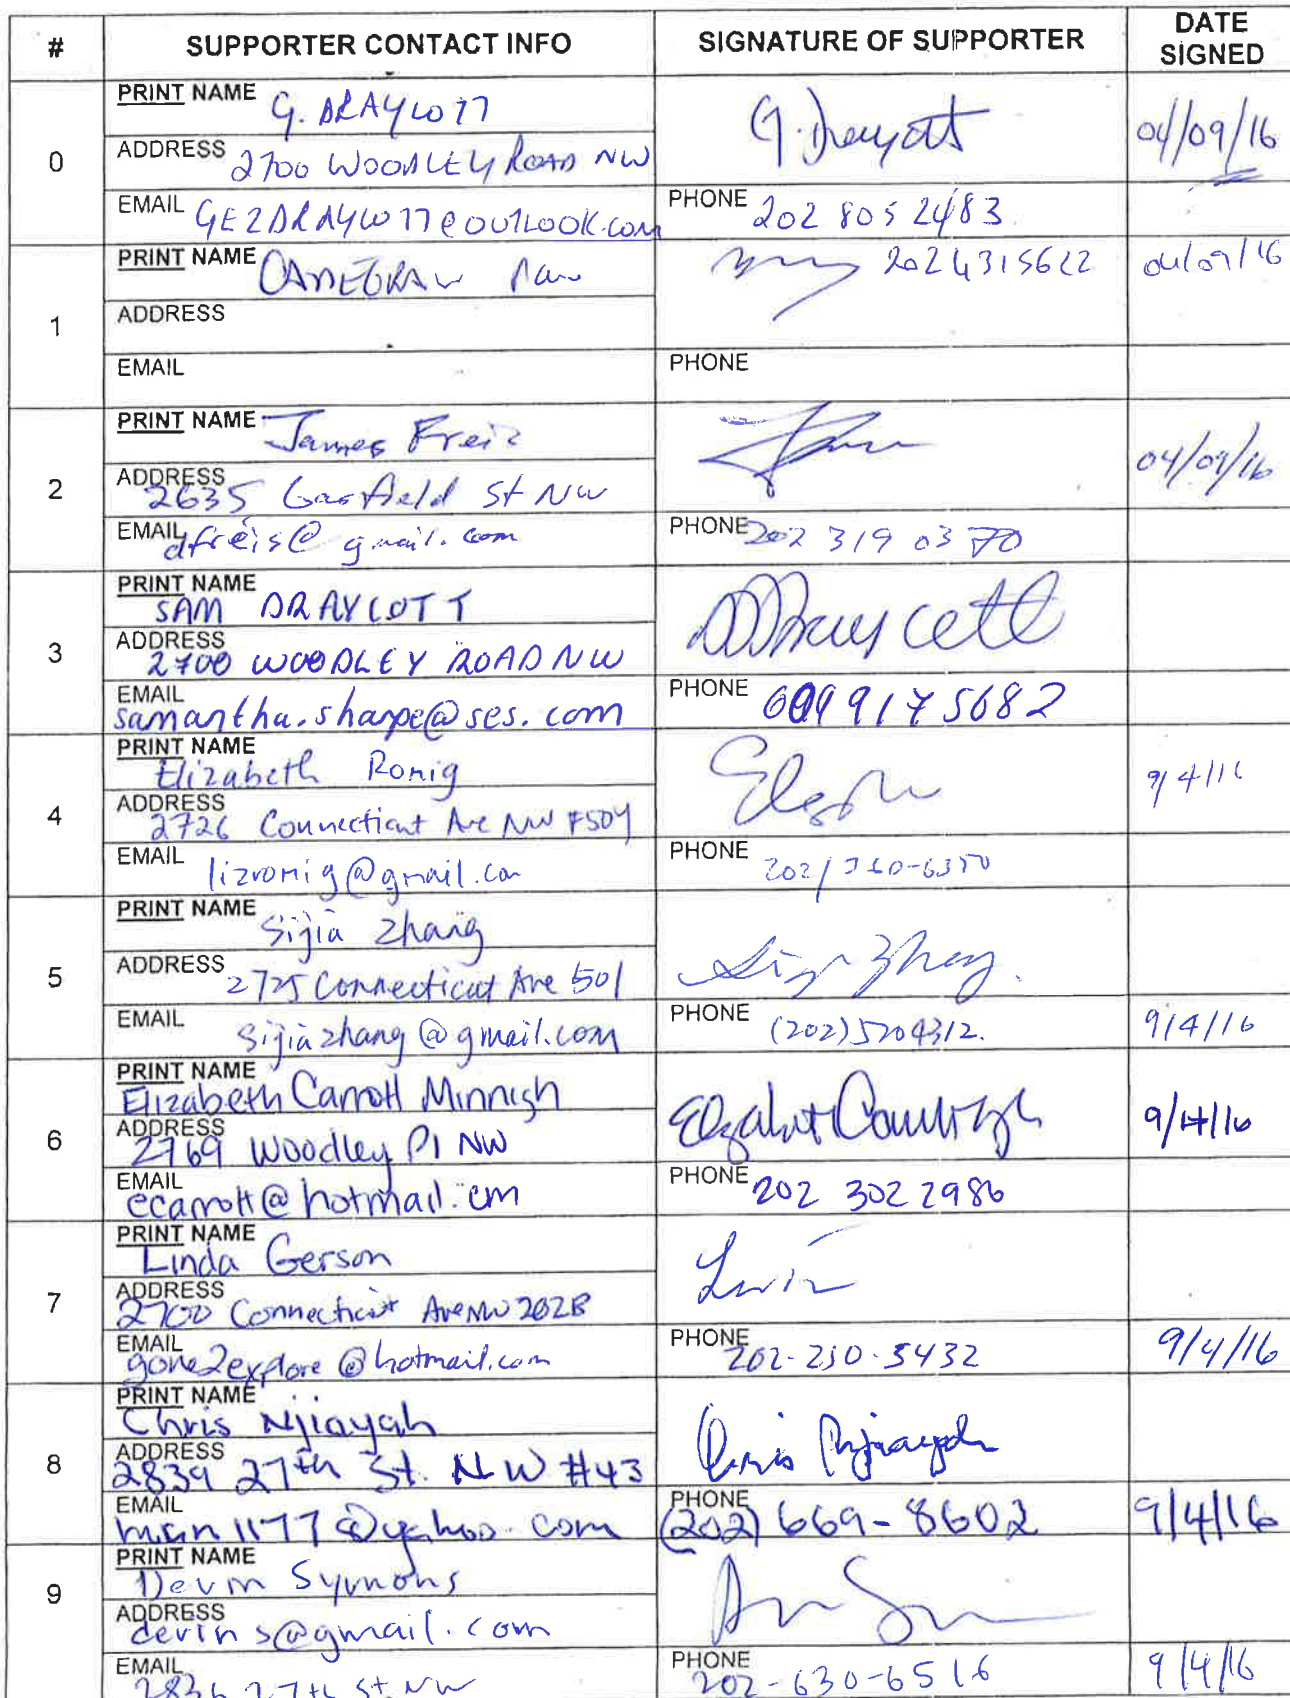 # SUPPORTER CONTACT INFO SIGNATURE OF SUPPORTER DATE SIGNED
0
PRINT NAME G. DRAYCOTT
ADDRESS 2700 WOODLEY ROAD NW
EMAIL GEZDRAYCOTT@OUTLOOK.COM
G. Draycott
04/09/16
PHONE 202 805 2483
1
PRINT NAME
2024315622 04/09/16
ADDRESS
EMAIL
PHONE
2
PRINT NAME James Freis
ADDRESS 2635 Garfield St NW
EMAIL dfreis@gmail.com
04/09/16
PHONE 202 319 0370
3
PRINT NAME SAM DRAYCOTT
ADDRESS 2700 WOODLEY ROAD NW
EMAIL samantha.sharpe@ses.com
Draycott
PHONE 609 917 5682
4
PRINT NAME Elizabeth Romig
ADDRESS 2726 Connecticut Ave NW #504
EMAIL lizromig@gmail.com
9/4/16
PHONE 202/
5
PRINT NAME Sijia Zhang
ADDRESS 2725 Connecticut Ave 501
EMAIL sijiazhang@gmail.com
Sijia Zhang
PHONE (202)5204312. 9/4/16
6
PRINT NAME Elizabeth Carrott Minnigh
ADDRESS 2769 Woodley Pl NW
EMAIL ecarrott@hotmail.cm
9/4/16
PHONE 202 302 2986
7
PRINT NAME Linda Gerson
ADDRESS 2700 Connecticut Ave NW 202B
EMAIL gone2explore@hotmail.com
PHONE 202-250-5432 9/4/16
8
PRINT NAME Chris Njiayah
ADDRESS 2839 27th St. NW #43
EMAIL @yahoo.com
Chris Njiayah
PHONE (202) 669-8602 9/4/16
9
PRINT NAME Devin Symons
ADDRESS devins@gmail.com
EMAIL 2836 27th St. NW
PHONE 202-630-6516 9/4/16